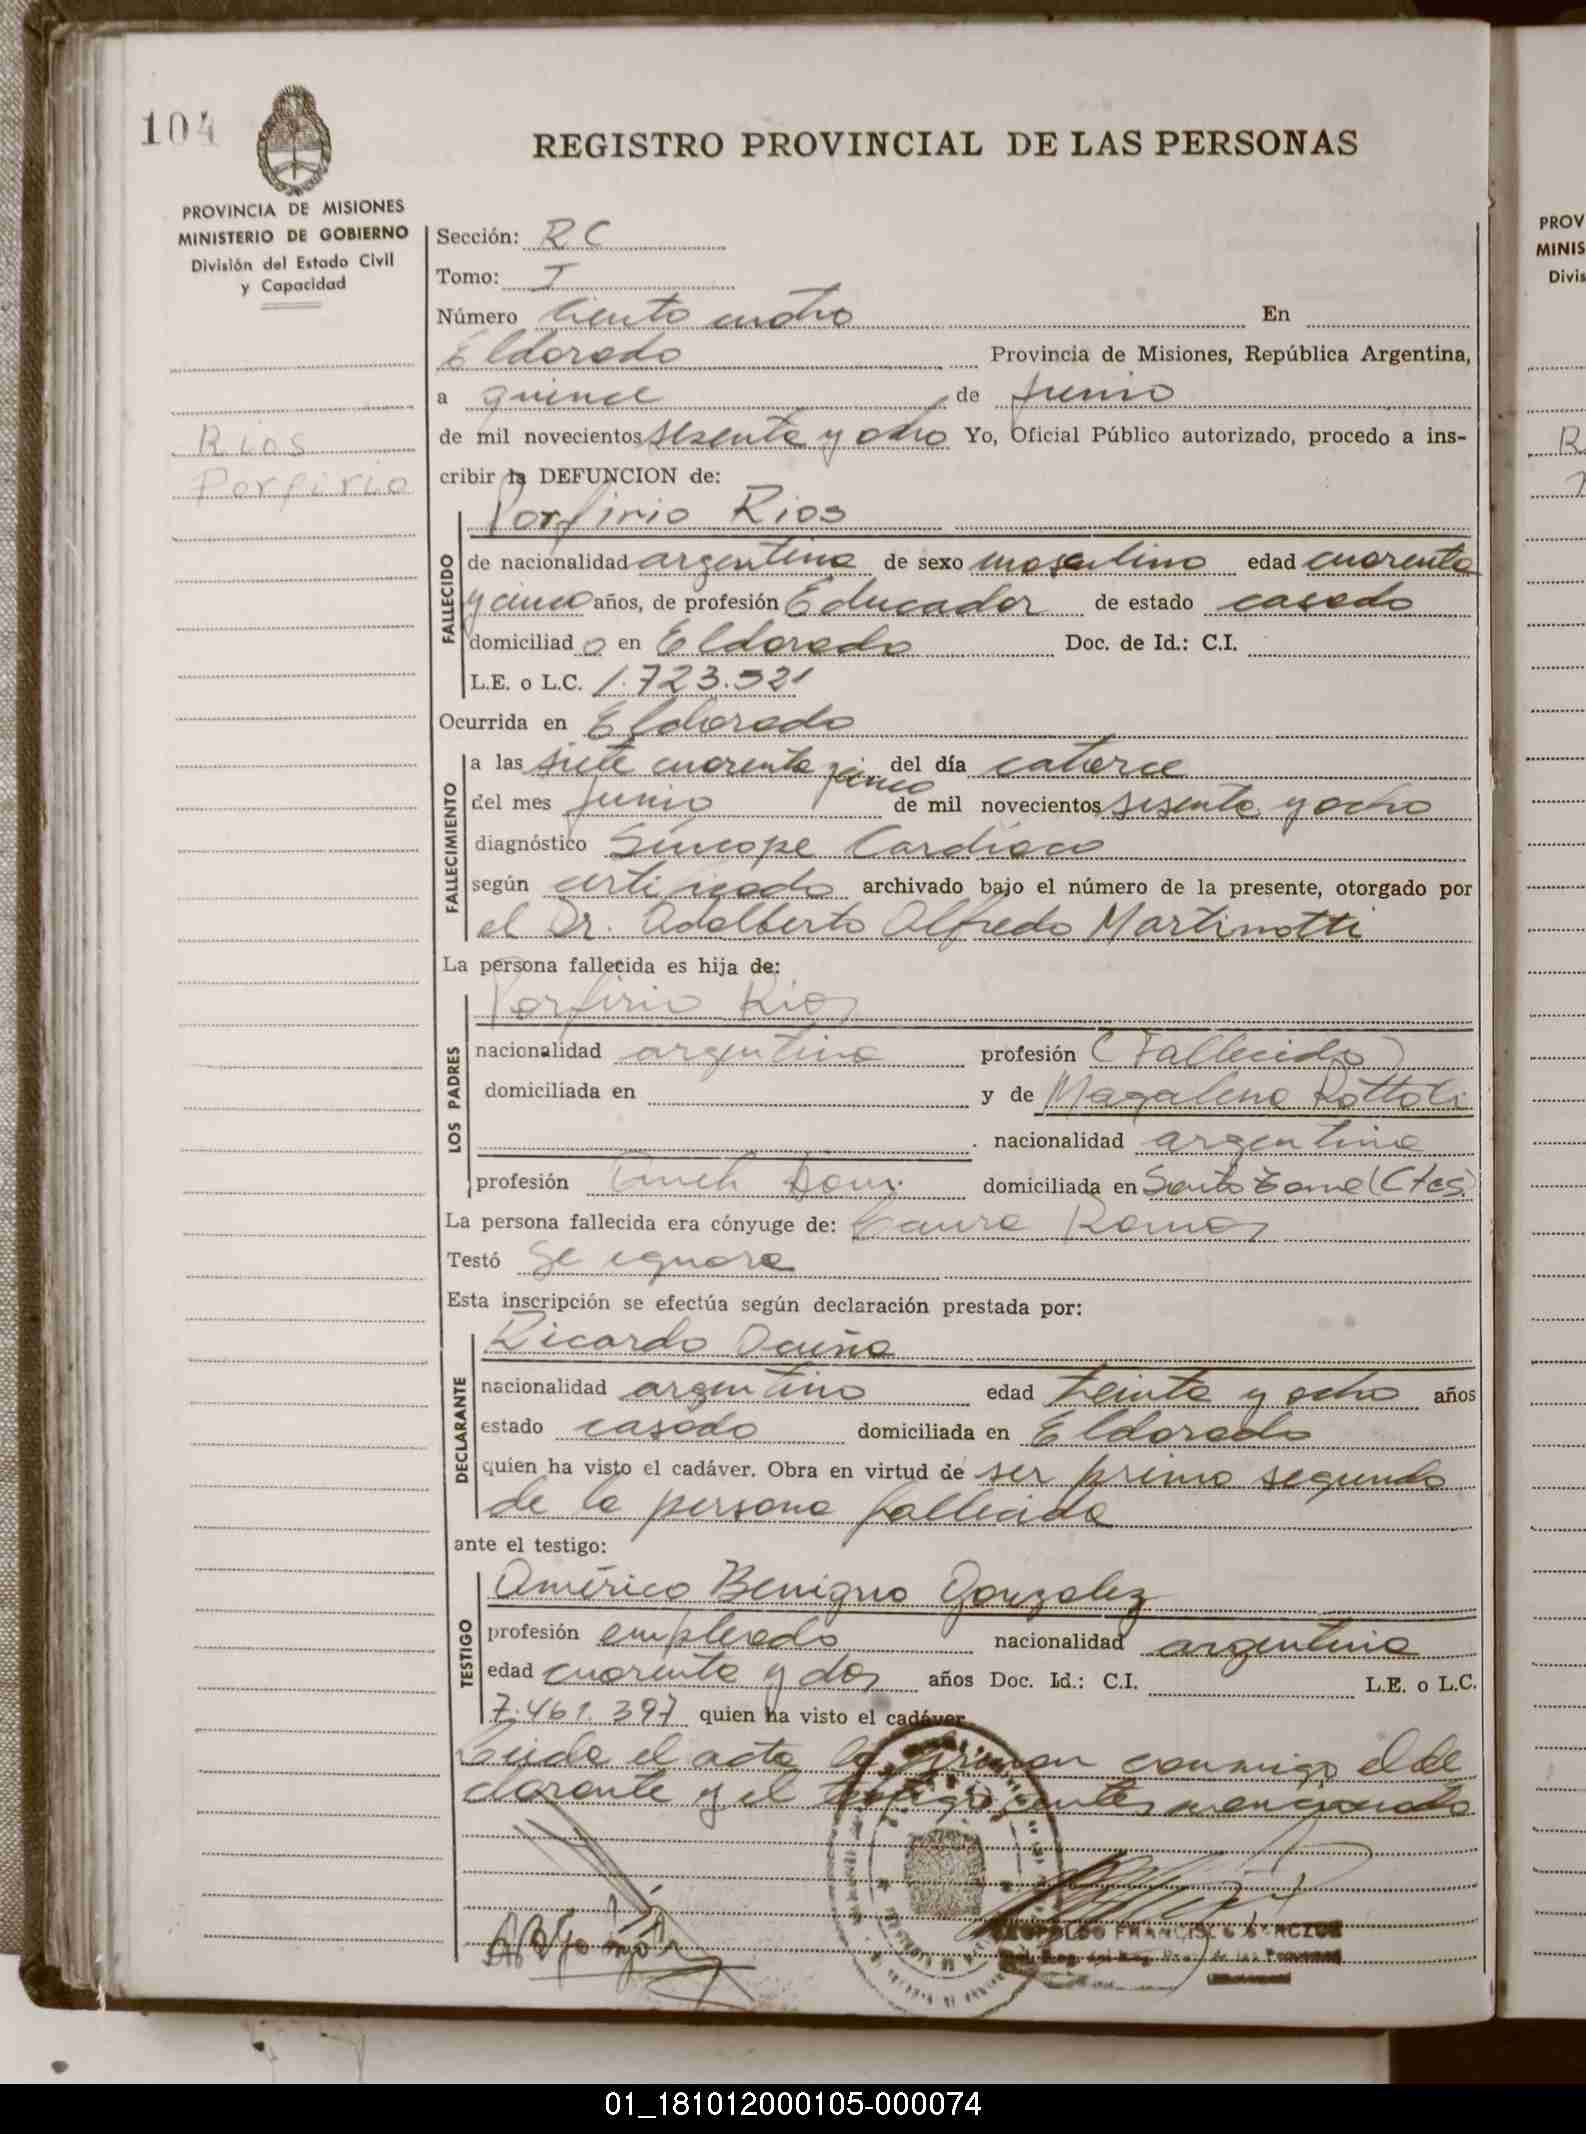 104
REGISTRO PROVINCIAL DE LAS PERSONAS
PROVINCIA DE MISIONES
MINISTERIO DE GOBIERNO
División del Estado Civil
y Capacidad
Rios
Porfirio
Sección: RC
Tomo: I
Número Ciento cuatro En
Eldorado Provincia de Misiones, República Argentina,
a quince de junio
de mil novecientos sesenta y ocho Yo, Oficial Público autorizado, procedo a ins-
cribir la DEFUNCION de:
Porfirio Rios
FALLECIDO
de nacionalidad argentina de sexo masculino edad cuarenta
y cinco años, de profesión Educador de estado casado
domiciliad o en Eldorado Doc. de Id.: C.I.
L.E. o L.C. 1.723.521
Ocurrida en Eldorado
FALLECIMIENTO
a las siete cuarenta y cinco del día catorce
del mes junio de mil novecientos sesenta y ocho
diagnóstico Síncope Cardíaco
según certificado archivado bajo el número de la presente, otorgado por
el Dr. Adalberto Alfredo Martinotti
La persona fallecida es hija de:
Porfirio Rios
LOS PADRES
nacionalidad argentina profesión (Fallecido)
domiciliada en y de Magalena Rottoli
nacionalidad argentina
profesión domiciliada en Santo Tomé (Ctes)
La persona fallecida era cónyuge de: Laura Ramos
Testó Se ignora
Esta inscripción se efectúa según declaración prestada por:
Ricardo Acuña
DECLARANTE
nacionalidad argentino edad treinta y ocho años
estado casado domiciliada en Eldorado
quien ha visto el cadáver. Obra en virtud de ser primo segundo
de la persona fallecida
ante el testigo:
Américo Benigno Gonzalez
TESTIGO
profesión empleado nacionalidad argentina
edad cuarenta y dos años Doc. Id.: C.I. L.E. o L.C.
7.461.397 quien ha visto el cadáver
Leida el acta la firman conmigo el de
clarante y el testigo antes mencionado
PROV
MINIS
Divis
01_181012000105-000074